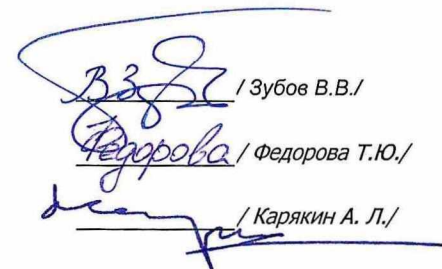 / Зубов В.В./
Федорова / Федорова Т.Ю./
/ Карякин А. Л./